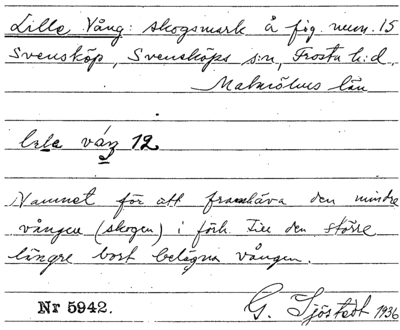 Lille Vång: skogsmark å fig. num. 15
Svensköp, Svensköps s:n, Frosta h:d.
Malmöhus län
váŋ 12
Namnet för att framhäva den mindre
vången (skogen) i förh. till den större
längre bort belägna vången.
Nr 5942. G. Sjöstedt 1936